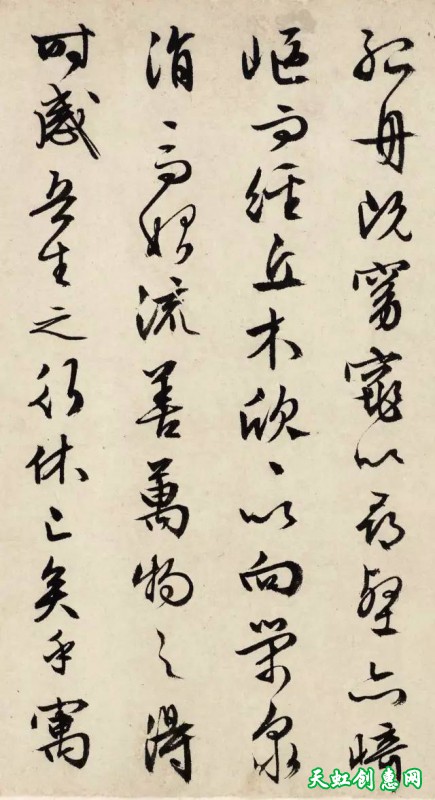 孤舟既窈窕以尋壑亦崎
嶇而經丘木欣々以向榮泉
涓々而始流善萬物之得
時感吾生之行休已矣乎寓
天虹创惠网